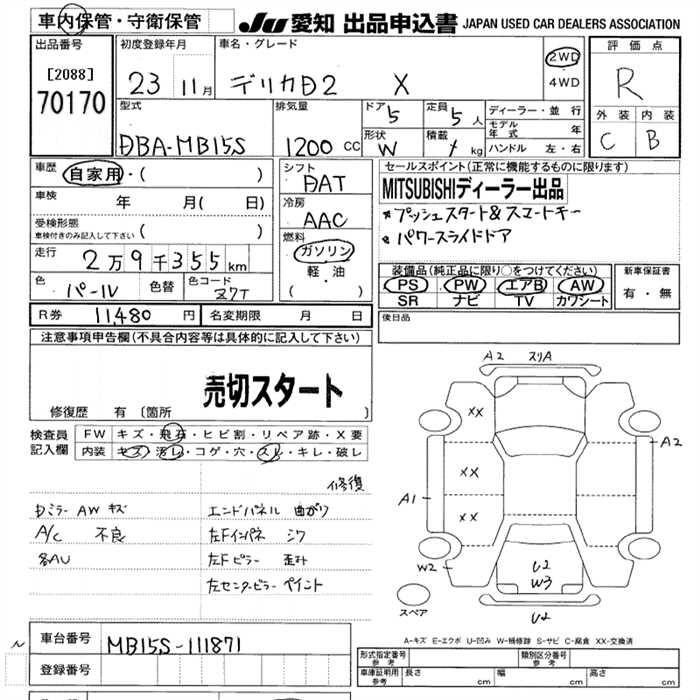 車内保管・守衛保管
JU 愛知 出品申込書 JAPAN USED CAR DEALERS ASSOCIATION
出品番号 初度登録年月 車名・グレード 評価点
[2088]
70170
23 11月 デリカD2 X
2WD
4WD
R
型式 排気量 ドア 定員 ディーラー・並行 外装 内装
DBA-MB15S 1200 CC 5 5人
モデル年式 年
形状 W 積載 kg ハンドル 左・右
C B
車歴 自家用・( )
シフト DAT
セールスポイント(正常に機能するものに限ります)
車検 年 月( 日)
冷房 AAC
MITSUBISHIディーラー出品
受検形態
車検付きのみ記入して下さい ( )
プッシュスタート&スマートキー
パワースライドドア
走行 2万9千355km
燃料 ガソリン
軽・油
( )
色 パール 色替 色コード Z7T
装備品(純正品に限り○をつけてください) 新車保証書
PS PW エアB AW
SR ナビ TV カワシート
有・無
R券 11,480 円 名変期限 月 日
後日品
注意事項申告欄(不具合内容等は具体的に記入して下さい)
売切スタート
修復歴 有 〔箇所 〕
検査員記入欄
FW キズ・飛石・ヒビ割・リペア跡・X要
内装 キズ・汚レ・コゲ・穴・スレ・キレ・破レ
修復
Dミラー AW キズ エンドパネル 曲がり
A/C 不良 左Fインパネ シワ
各AU 左Fピラー 歪み
左センターピラー ペイント
A2 スリA
XX
A2
XX
A1
XX
W2
U2
W3
スペア
U2
A-キズ E-エクボ U-凹み W-補修跡 S-サビ C-腐食 XX-交換済
車台番号 MB15S-111871
登録番号
形式指定番号 参考 類別区分番号 参考
車庫証明用 参考 長さ cm 幅 cm 高さ cm